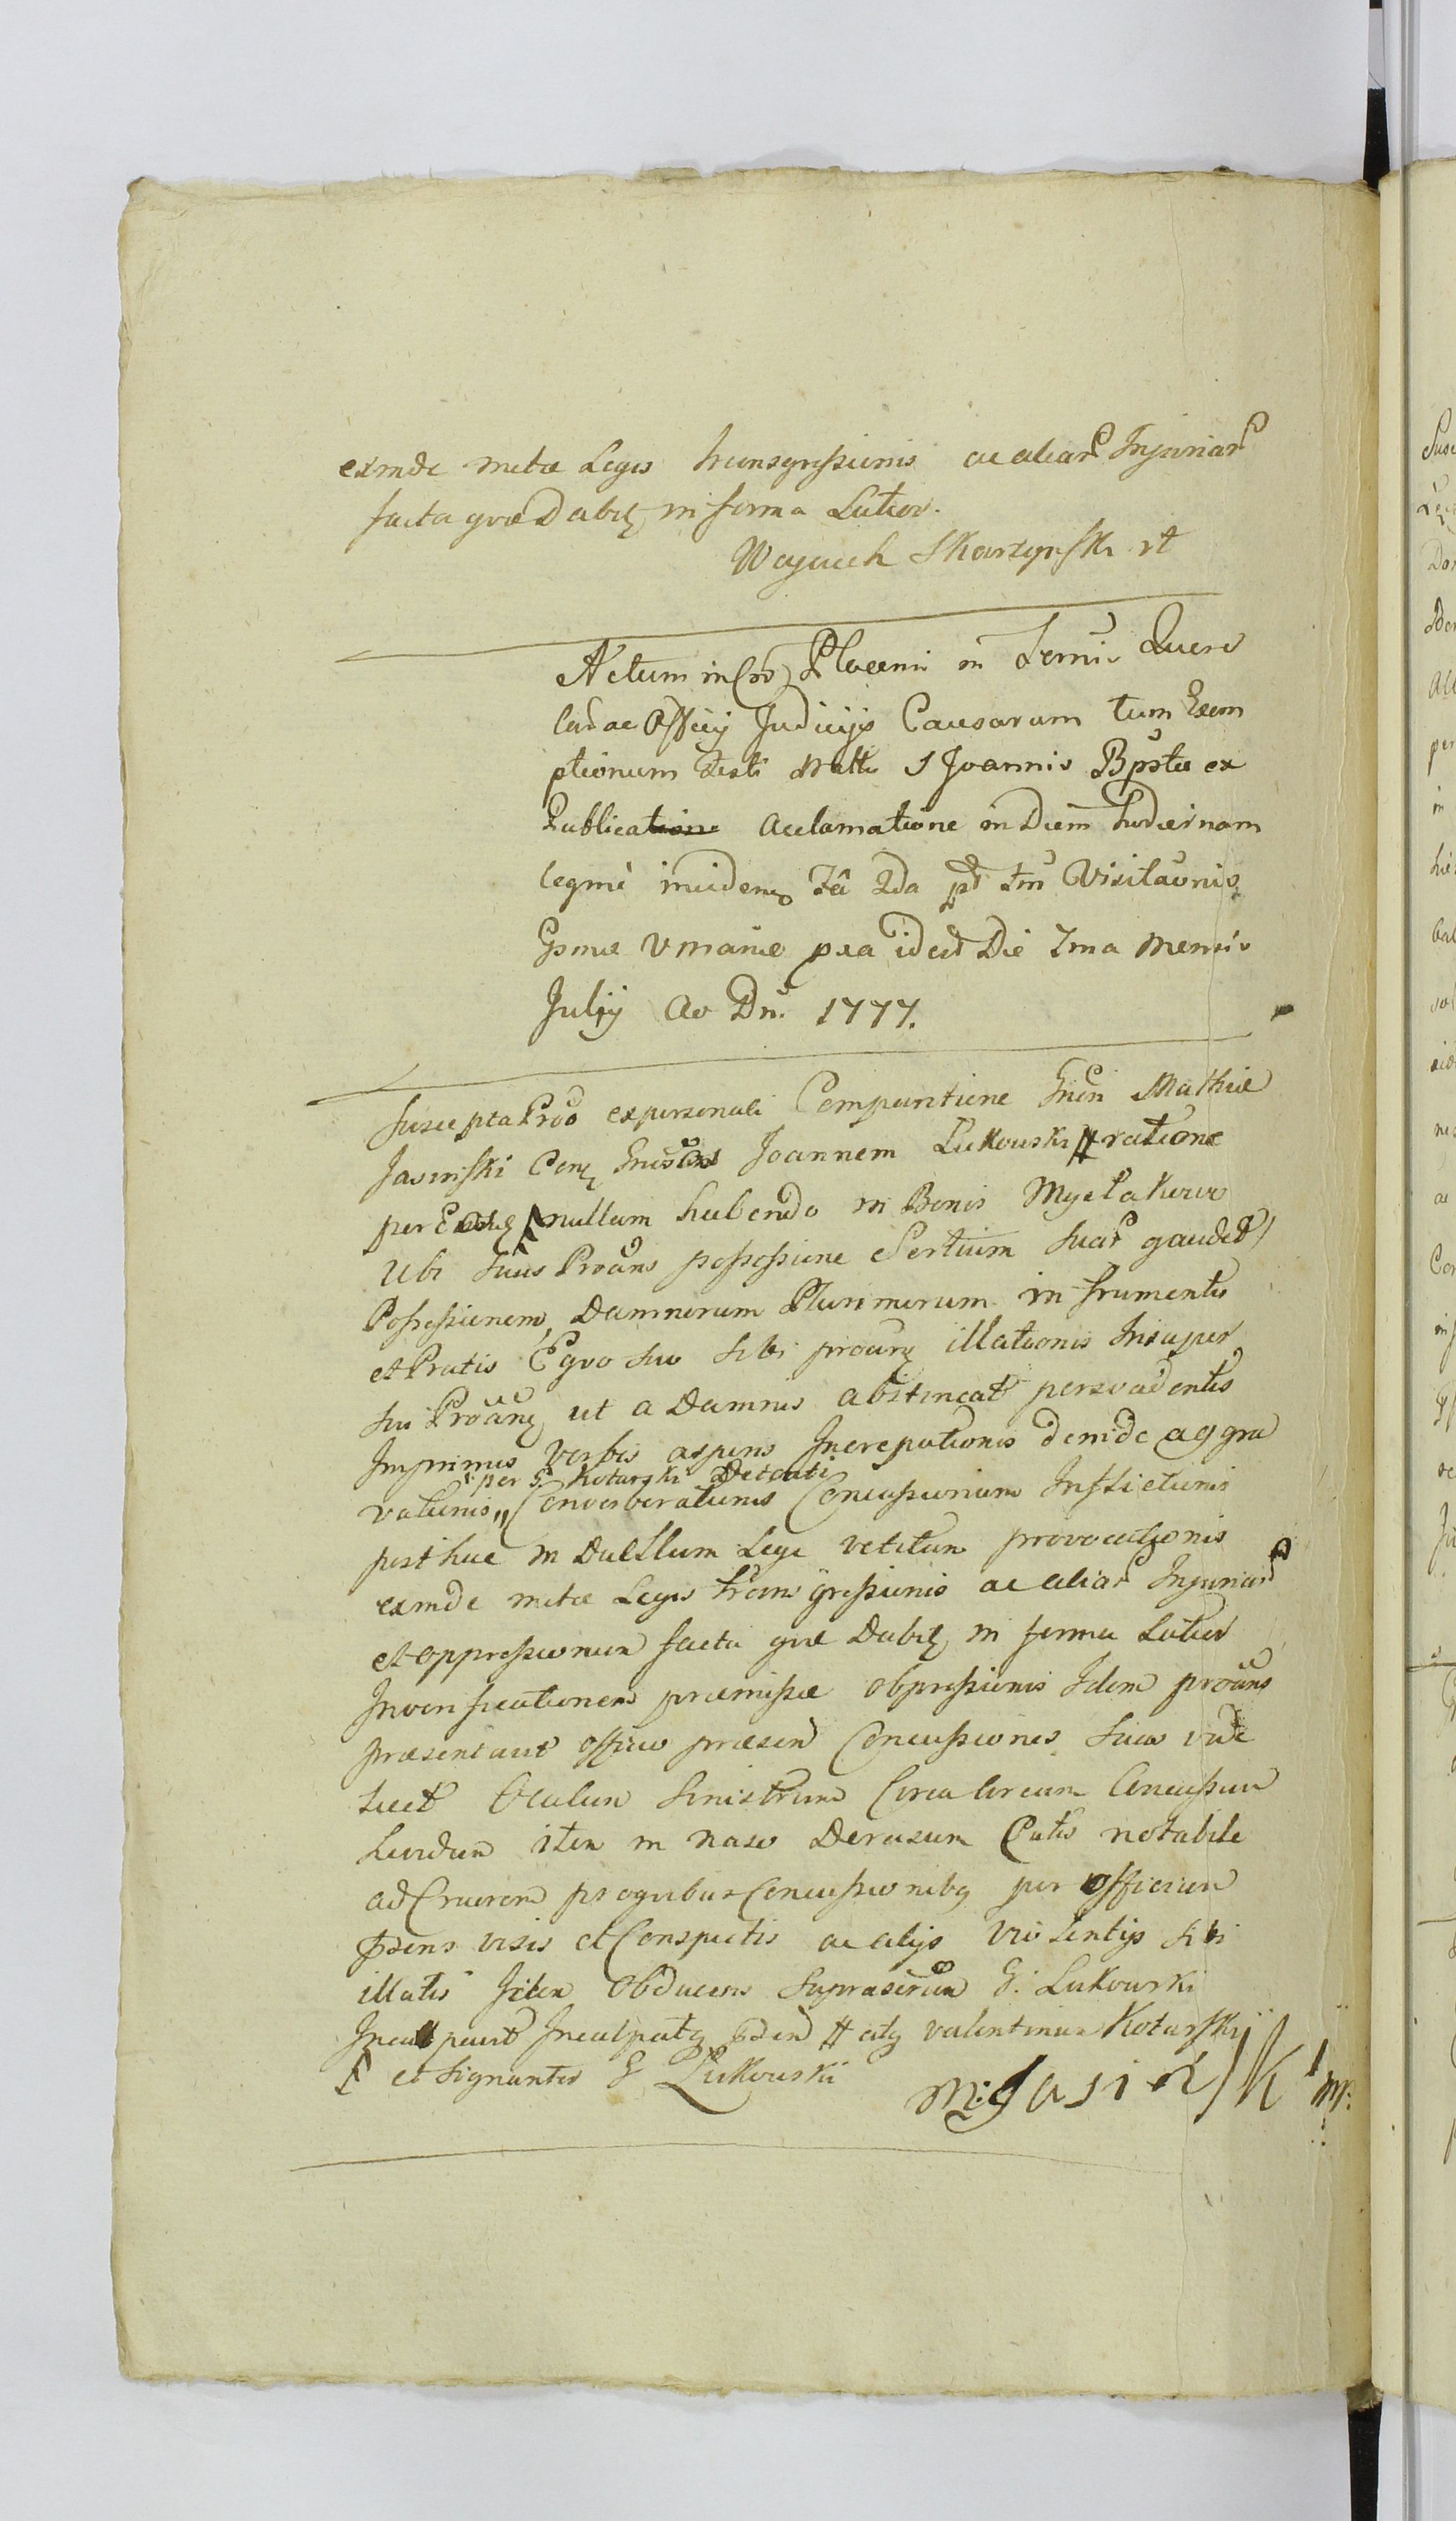 exinde metæ Legis transgressionis ac aliar Injuriar
facta quæ Dabitꝫ in forma Latior.
Wojciech Skarzynski rt
Actum in Plocen in Termis Quere
lar ac Officij Judicijs Causarum tum Exem
ptionum Festi Natts S Joannis Bpstæ ex
Publication Acclamatione in Diem hodiernam
legmè inciden Fâ 2da pt Fm Visitaonis
Gsmæ V mariæ pxa idest Die 7ma Mensis
Julij Ao Dni. 1777.
Suscepta Pro ex personali Comparitione Gnen Mathiæ
Jasinski Con Gnēsum Joannem Lukowski # ratione
per nullam habendo in Bonis Mystakowo
Ubi suus Proāns possessione Sortium suar gaudet)
Possessionem, Damnorum Plurimorum in frumentis
et Pratis Eqvo suo sibi proanꝫ illationis Insuper
sui Proānꝫ ut a Damnis abstineat persvadentis
Imprimis Verbis aspens Increpationis deinde aggra
per G. Kotarski Detenti
vationis,, Converberationis Concussionum Inflictionis
posthac in Duellum Lege vetitum provocationis
exinde metæ Legis transgressionis ac aliar Injuriar
et oppressionum facta quæ Dabitꝫ in forma Latior
In verificationem præmissæ obpressionis Idem proāns
præsentavit officio præsen Concussiones suas vide
licet Oculum Sinistrum Circa Circum Concussum
Lividum item in naso Derasum Cutis notabile
ad Cruorem pro quibus Concussionibꝫ per Officium
pdens visis et Conspectis ac alijs Violentijs sibi
illatis Item Obducens Suprascrum G. Lukowski
Inculpavit Inculpatꝫ # atq valentinum Kotarskij
et Signanter G Lukowski
M: Jasiński mp.